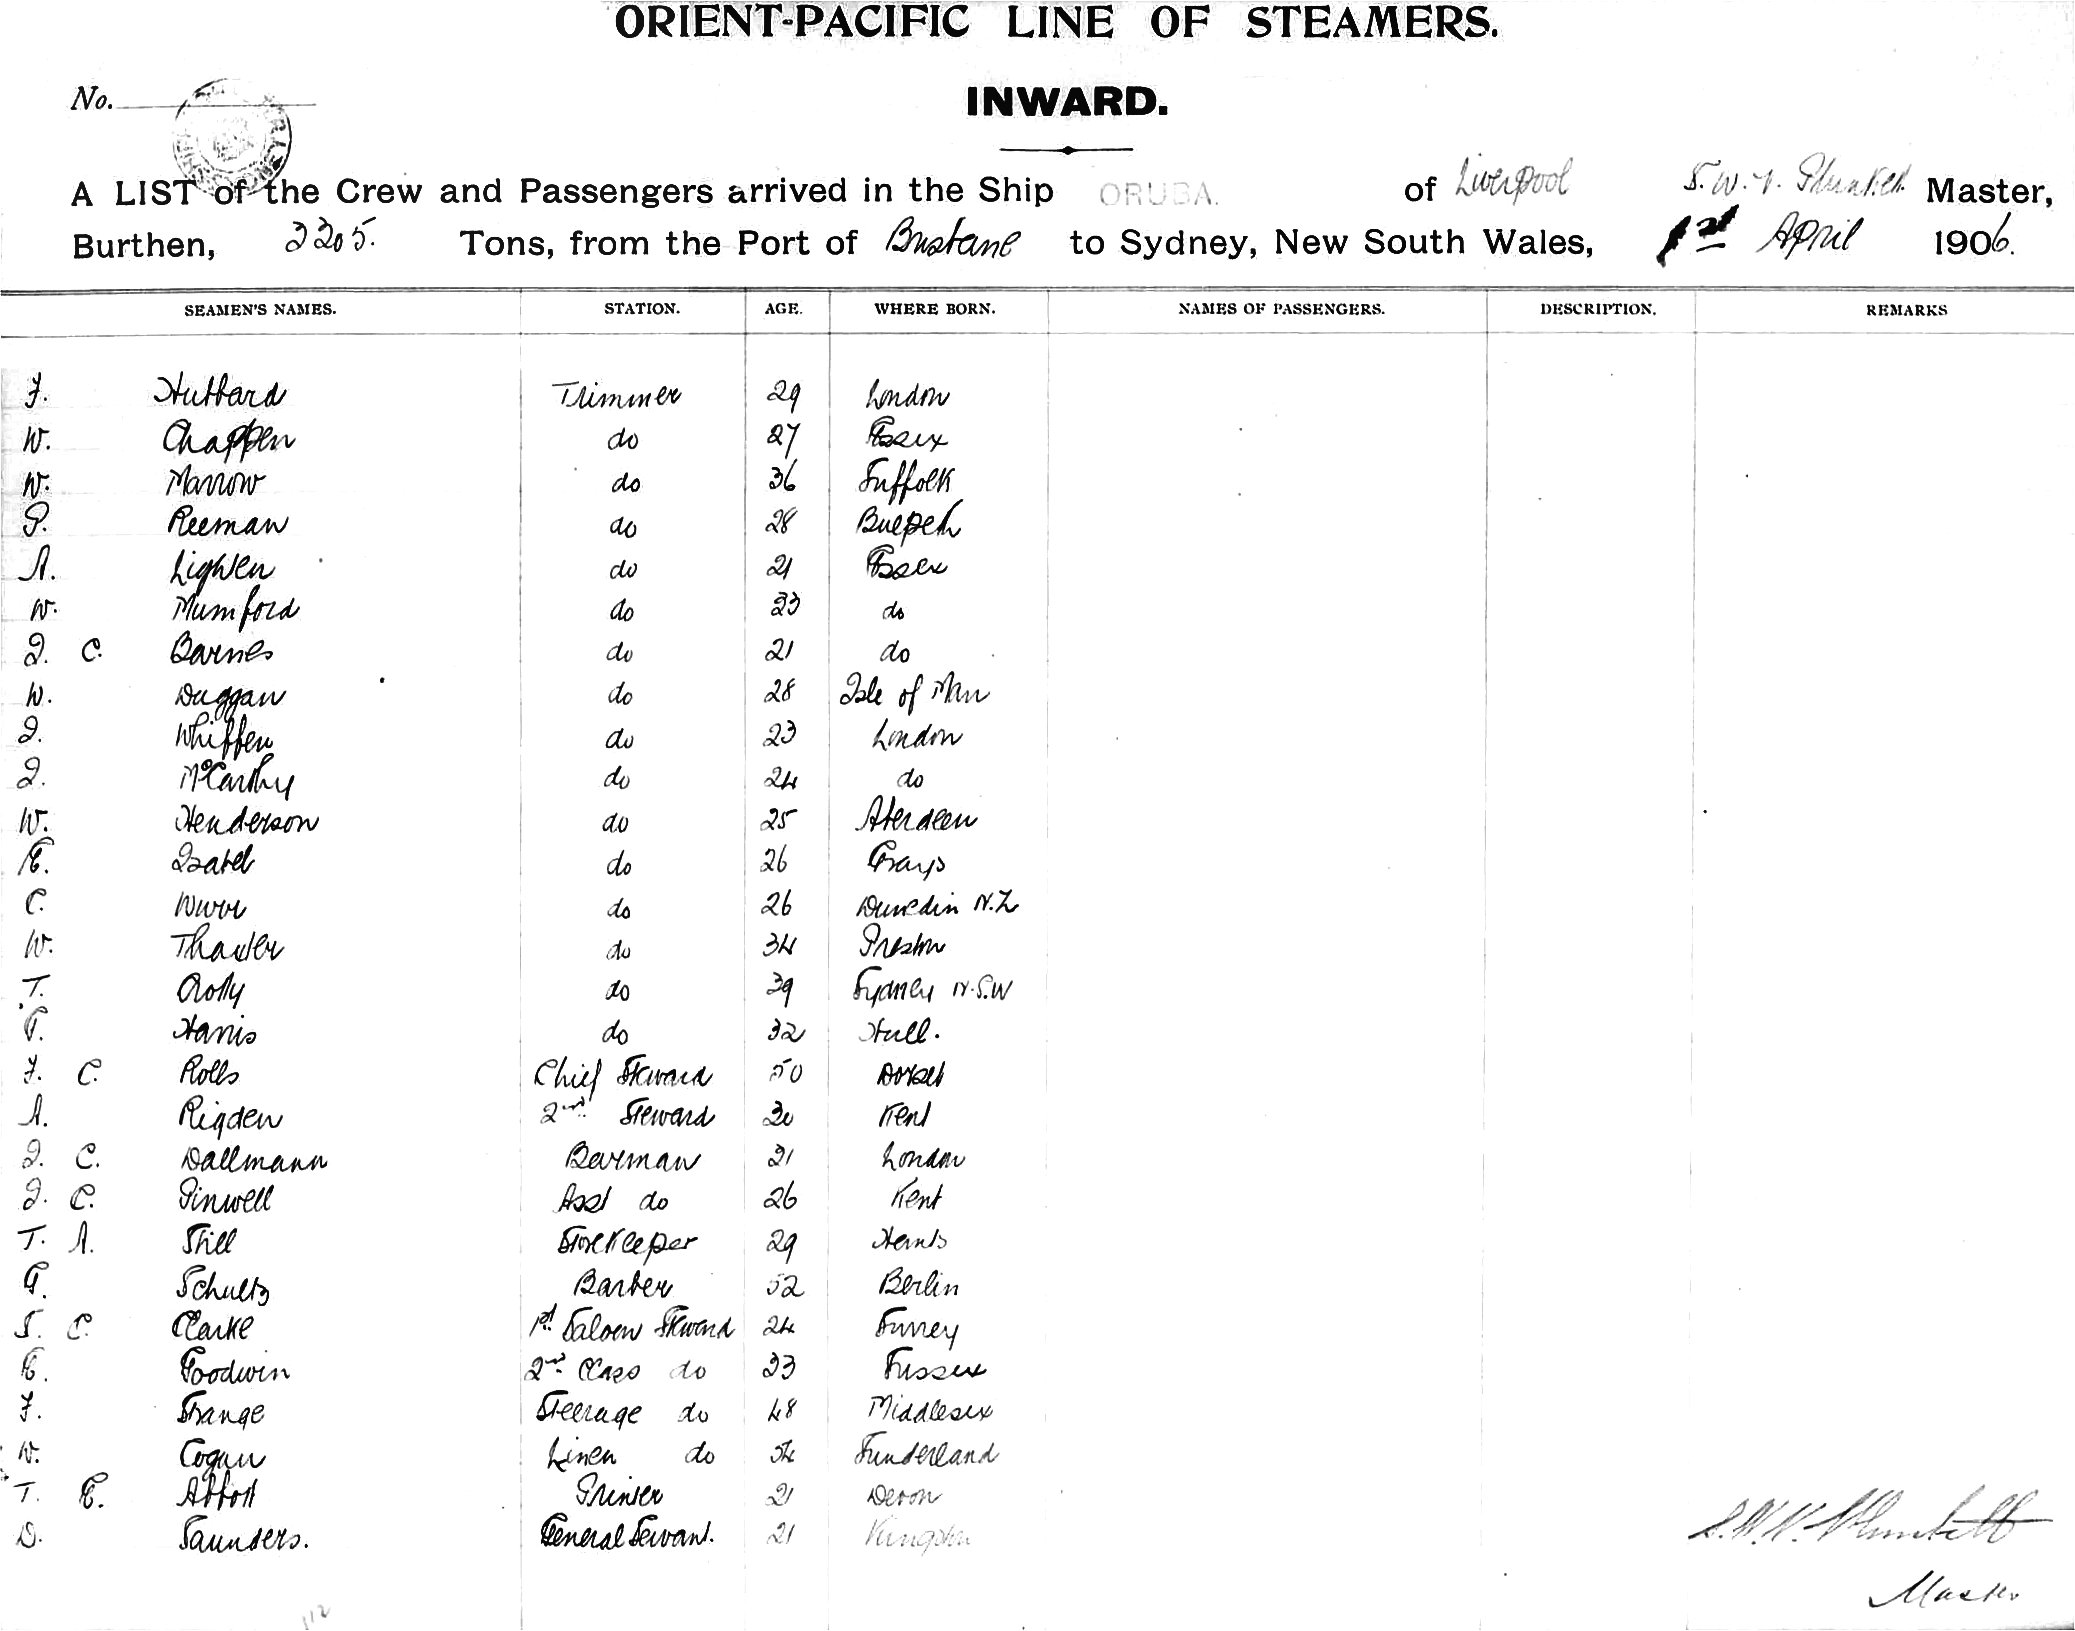 ORIENT-PACIFIC LINE OF STEAMERS.
No.
INWARD.
A LIST of the Crew and Passengers arrived in the Ship ORUBA. of Liverpool S. W. V. Plunkett Master,
Burthen, Tons, from the Port of Brisbane to Sydney, New South Wales, 1st April 1906.
SEAMEN'S NAMES. STATION. AGE. WHERE BORN. NAMES OF PASSENGERS. DESCRIPTION. REMARKS
F. Hubbard Trimmer 29 London
W. Chappen do 27 Essex
W. Marrow do 36 Suffolk
P. Reeman do 28
A. Lighten do 21 Essex
W. Mumford do 23 do
J. C. Barnes do 21 do
W. Duggan do 28 Isle of Man
J. Whiffen do 23 London
J. McCarthy do 24 do
W. Henderson do 25 Aberdeen
E. Isabel do 26 Grays
C. do 26 Dunedin N.Z
W. do 34 Preston
T. do 39 Sydney N.S.W
T. Harris do 32 Hull.
F. C. Rolls Chief Steward 50 Dorset
A. Rigden 2nd Steward 30 Kent
J. C. Dallmann Barman 21 London
J. C. Pinwell Asst do 26 Kent
T. A. Still Storekeeper 29 Hants
G. Schultz Barber 52 Berlin
S. C. Clarke 1st Saloon Steward 24 Surrey
E. Goodwin 2nd Class do 23 Sussex
F. Strange Steerage do 48 Middlesex
W. Cogan Linen do 54 Sunderland
T. E. Abbott Printer 21 Devon
D. Saunders. General Servant. 21
S. W. V. Plunkett
Master
112